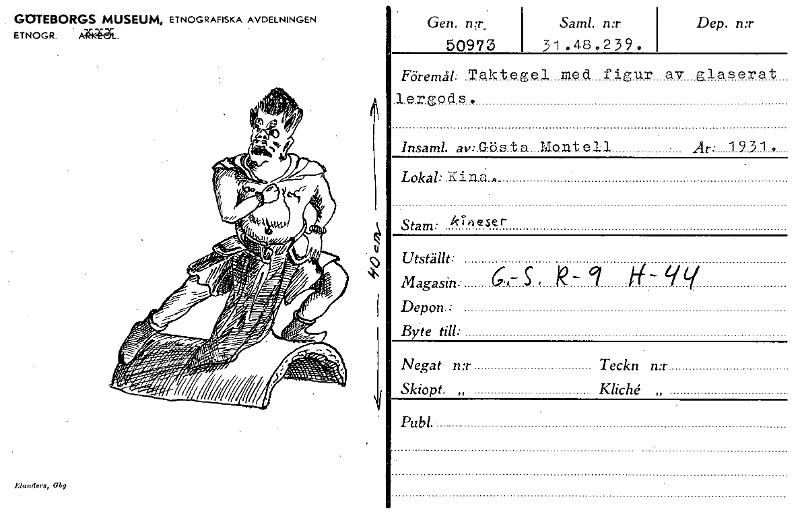 GÖTEBORGS MUSEUM, ETNOGRAFISKA AVDELNINGEN
ETNOGR. ARKEOL.
40 cm
Elanders, Gbg
Gen. n:r Saml. n:r Dep. n:r
50973 31.48.239.
Föremål: Taktegel med figur av glaserat
lergods.
Insaml. av: Gösta Montell År: 1931.
Lokal: Kina.
Stam: kineser
Utställt:
Magasin: G.-S. R-9 H-44
Depon.:
Byte till:
Negat n:r Teckn n:r
Skiopt. „ Kliché „
Publ.